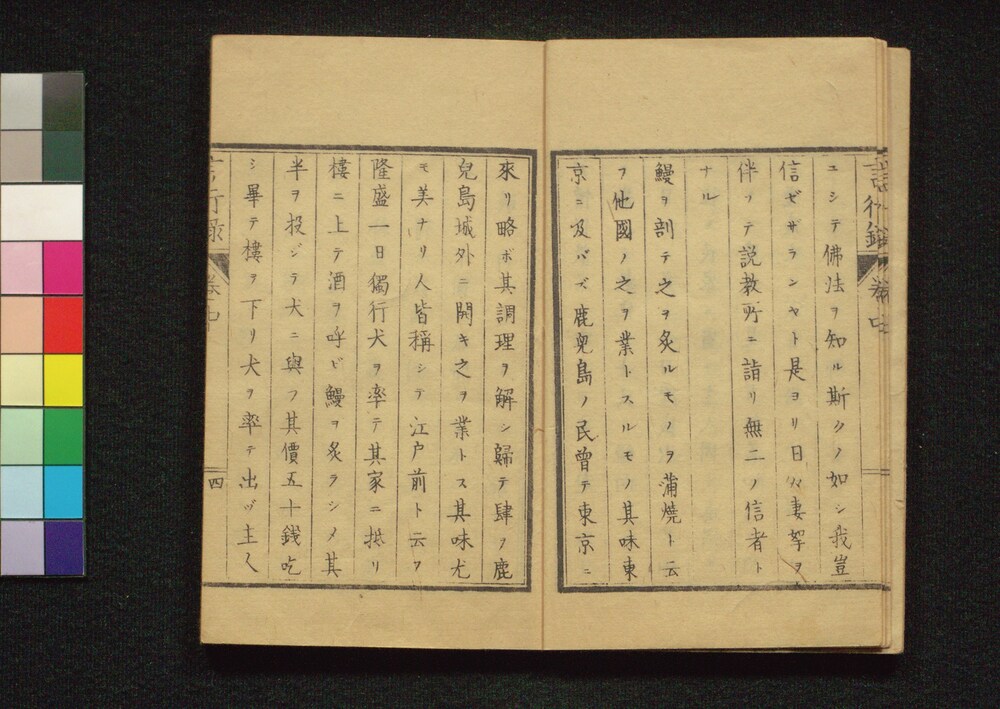 ニシテ佛法ヲ知ル斯クノ如シ我豈
信ゼザランヤト是ヨリ日々妻孥ヲ
伴フテ説教所ニ詣リ無二ノ信者ト
ナル
鰻ヲ剖テ之ヲ炙ルモノヲ蒲焼ト云
フ他國ノ之ヲ業トスルモノ其味東
京ニ及バズ鹿兒島ノ民曽テ東京ニ
來リ略ボ其調理ヲ解シ歸テ肆ヲ鹿
兒島城外ニ開キ之ヲ業トス其味尤
モ美ナリ人皆稱シテ江戸前ト云フ
隆盛一日獨行犬ヲ率テ其家ニ抵リ
樓ニ上テ酒ヲ呼ビ鰻ヲ炙ラシメ其
半ヲ投ジテ犬ニ與フ其價五十錢吃
シ畢テ樓ヲ下リ犬ヲ率テ出ヅ主人
言行録
卷中
四